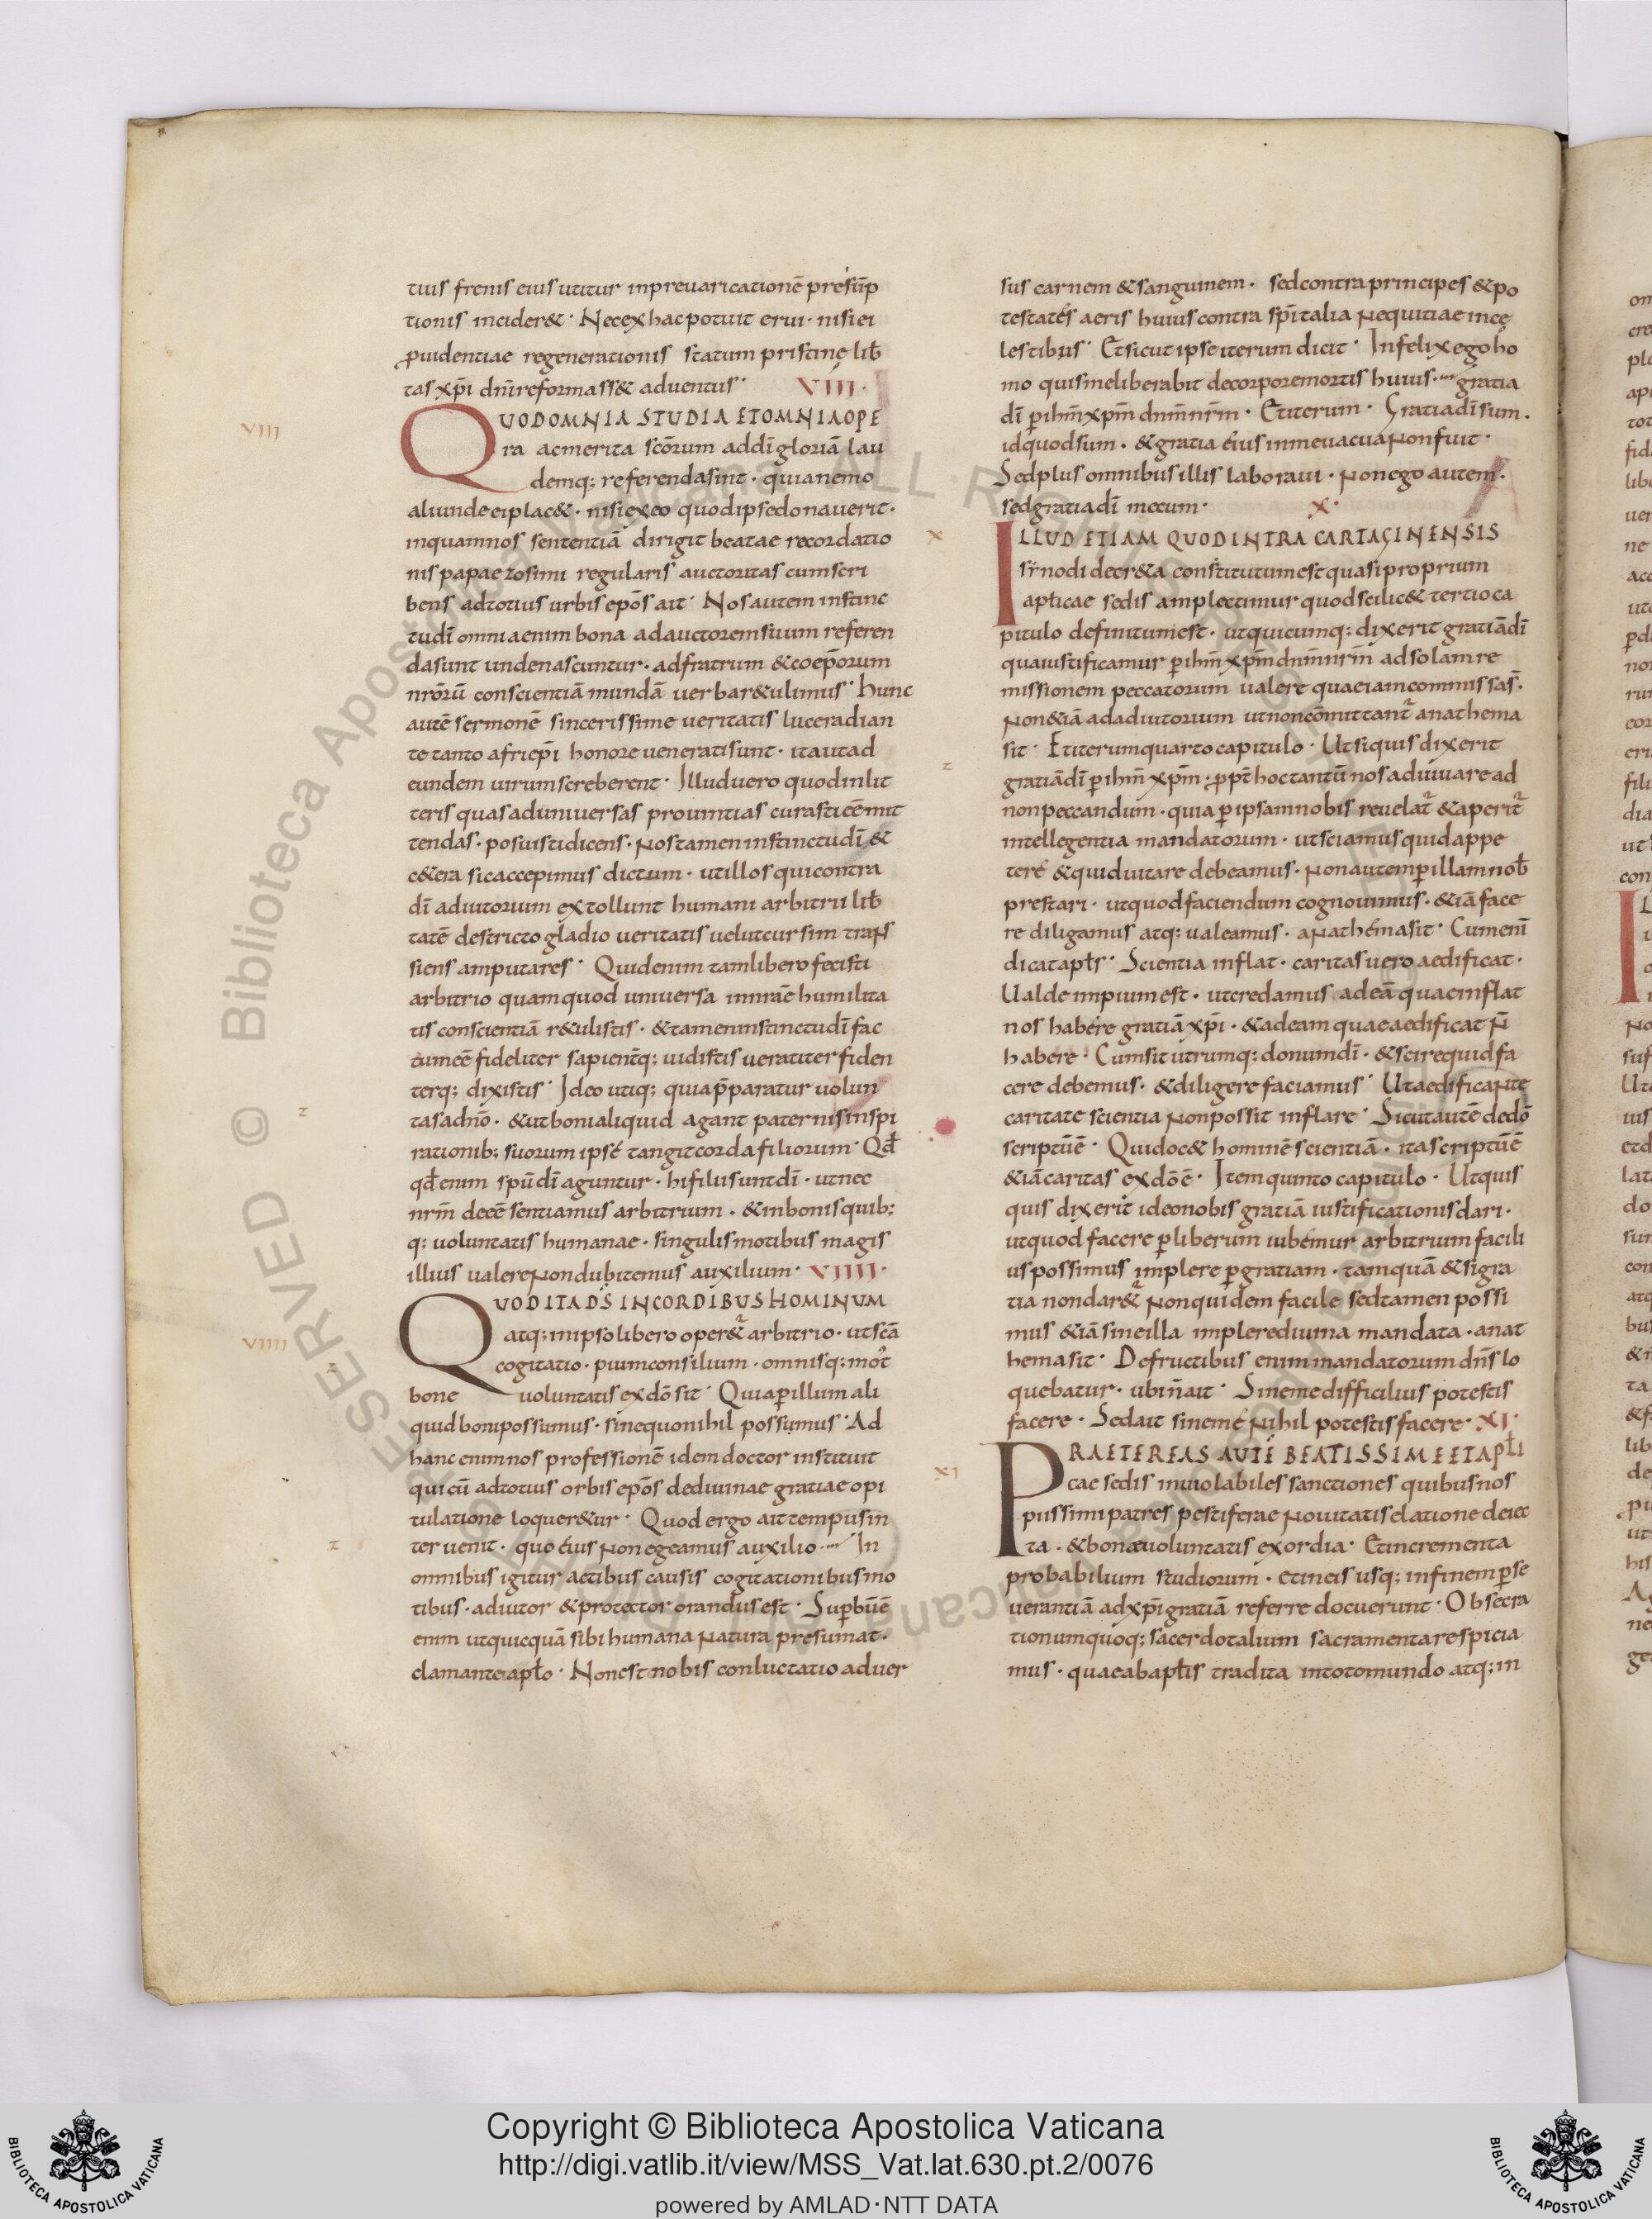 tuis frenis eius utitur inpreuaricationē presūp
tionis incider&· Necex hac potuit erui· nisi ei
ꝓuidentiae regenerationis statum pristinę lib̄
tas xp̄i dn̄i reformass& aduentus· VIII·
QUODOMNIA STUDIA ETOMNIAOPE
ra acmerita scōrum addī gloriā lau
demq; referendasint· quianemo
aliunde eiplac&· nisi exeo quodipsedonauerit·
inquamnos sententiā dirigit beatae recordatio
nis papae zosimi regularis auctoritas cumscri
bens adtotius urbis epōs ait· Nosautem instinc
tudī omnia enim bona adauctoremsuum referen
dasunt undenascuntur· adfratrum &coep̄orum
nrōrū conscientiā mundā uerbar&ulimus· hunc
autē sermonē sincerissime ueritatis luceradian
te tanto afriep̄i honore ueneratisunt· itautad
eundem uirumscreberent· Illuduero quodinlit
teris quas aduniuersas prouintias curasticēmit
tendas· posuistidicens· Nostamen instinctudī &
c&era sicaccepimus dictum· utillosquicontra
dī adiutorium extollunt humani arbitrii lib̄
tatē destricto gladio ueritatis uelutcursim traɴs
siens amputares· Quidenim tamlibero fecisti
arbitrio quamquod uniuersa innrāe humilita
tis conscientiā r&ulistis· &tameninstinctudī fac
tumeē fideliter sapientq; uidistis ueraciterfiden
terq; dixistis· Ideo utiq; quiap̄paratur uolun
tasadnō· &utbonialiquid agant paternisinspi
rationib; suorum ipsé tangitcordafiliorum· Qđ
qđ enim spūdī aguntur· hifiliisuntdī· utnec
nrm̄ deeē sentiamus arbitrium· &inbonisquib;
q; uoluntatis humanae· singulismotibus magis
illius ualereNondubitemus auxilium· VIIII·
QUODITADS̄ INCORDIBUSHOMINUM
atq;inipsolibero oper&ʳ arbitrio· utscā
cogitatio· piumconsilium· omnisq;mot̄
bone uoluntatis exdō sit· Quiap̱illum ali
quidbonipossumus· sinequonihil possumus· Ad
hanc enimnos professionē idemdoctor instituit
quicū adtotius orbis epōs dediuinae gratiae opi
tulatione loquer&ur· Quod ergo aittempusin
teruenit· quo éius Nonegeamus auxilio· In
omnibus igitur actibus causis cogitationibusmo
tibus· adiutor &protector orandusest· Sup̱būē
enim utquicquā sibi humana Natura presumat·
clamanteapłō· Nonest nobis conluctatio aduer
sus carnem &sanguinem· sedcontraprincipes &po
testatés aeris huius contra sp̄italia Nequitiaeincę
lestibus· Etsicutipse iterum dicit· Infelixegoho
mo quismeliberabit decorporemortis huius· gratia
dī p̱ihm̄xpm̄ dnm̄nrm̄· Etiterum· Gratiadī sum·
idquodsum· &gratia éius inmeuacuaNonfuit·
Sedplus omnibus illis laboraui· Nonego autem·
sedgratiadī mecum· X·
ILLUD ETIAM QUODINTRA CARTAGINENSIS
sinodi decr&a constitutumest quasiproprium
aptl̄icae sedis amplectimur quodscilic& tertioca
pitulo definitumest· utquicumq; dixerit gratiādī
quaiustificamur p̱ihm̄ xpm̄dnm̄nrm̄ adsolamre
missionem peccatorum ualere quaeiamcommissas̄·
Non&iā adadiutorium utnoncōmittantʳ anathema
sit· Etiterumquarto capitulo· Utsiquisdixerit
gratiādī p̱ihm̄ xpm̄· ꝓpt̄ hoctantū nos adiuuare ad
nonpeccandum· quiap̱ipsamnobis reuelatʳ &aperitʳ
intellegentia mandatorum· utsciamusquidappe
teré &quiduitare debeamus· Nonautemp̱illamnob̄
prestari· utquodfaciendum cognouimus· &iāface
re diligamus atq; ualeamus· aNathémasit· Cumenī
dicatapłs· Scientia inflat· caritasuero aedificat·
Ualde impiumest· utcredamus adeā quaeinflat
nos habére gratiā xp̄i· &adeam quaeaedificat N̄
habere· Cumsitutrumq; donumdī· &scirequidfa
cere debemus· &diligere faciamus· UtaedificaNte
caritate scientia Nonpossit inflare· Sicutautē dedō
scriptūē· Quidoc& hominē scientiā· itascriptūē
&iācaritas exdō ē· Item quinto capitulo· Utquis
quis dixerit ideonobis gratiā iustificationisdari·
utquod facere p̱liberum iubémur arbitrium facili
uspossimus implere p̱gratiam· tamquā &sigra
tia nondar&ʳ Nonquidem facile sedtamen possi
mus &iāsineilla implerediuina mandata· anat
hemasit· Defructibus enim mandatorum dn̄s lo
quebatur· ubin̄ait· Sineme difficilius potestis
facere· Sedait sinemé Nihil potestis facere· XI·
PRAETEREAS AUTĒ BEATISSIMEETAPŁI
cae sedis inuiolabiles sanctiones quibusnos
piissimipatres pestiferae Nouitatis elatione deiec
ta· &bonaeuoluntatis exordia· Etincrementa
probabilium studiorum· etineis usq; infinemp̱se
uerantiā adxp̄igratiā referre docuerunt· Obsecra
tionumquoq; sacerdotalium sacramentarespicia
mus· quaeabapłis tradita intotomundo atq;in
VIII
z
VIIII
z
X
z
XI
© Biblioteca Apostolica Vaticana ALL RIGHTS RESERVED
Copyright © Biblioteca Apostolica Vaticana
http://digi.vatlib.it/view/MSS_Vat.lat.630.pt.2/0076
powered by AMLAD·NTT DATA
BIBLIOTECA APOSTOLICA VATICANA
BIBLIOTECA APOSTOLICA VATICANA